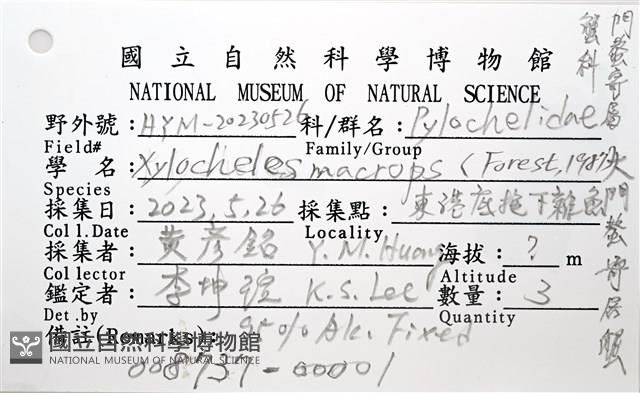 國立自然科學博物館
NATIONAL MUSEUM OF NATURAL SCIENCE
門螯寄居蟹科
野外號：HYM-20230526 科/群名：Pylochelidae
Field# Family/Group
學名：Xylocheles macrops (Forest, 1987)
Species
大門螯寄居蟹
採集日：2023.5.26 採集點：東港底拖下雜魚
Coll.Date Locality
採集者：黃彥銘 Y. M. Huang 海拔：? m
Collector Altitude
鑑定者：李坤瑄 K. S. Lee 數量：3
Det.by Quantity
備註(Remarks)：95% Alc. Fixed
國立自然科學博物館
NATIONAL MUSEUM OF NATURAL SCIENCE
008737-00001